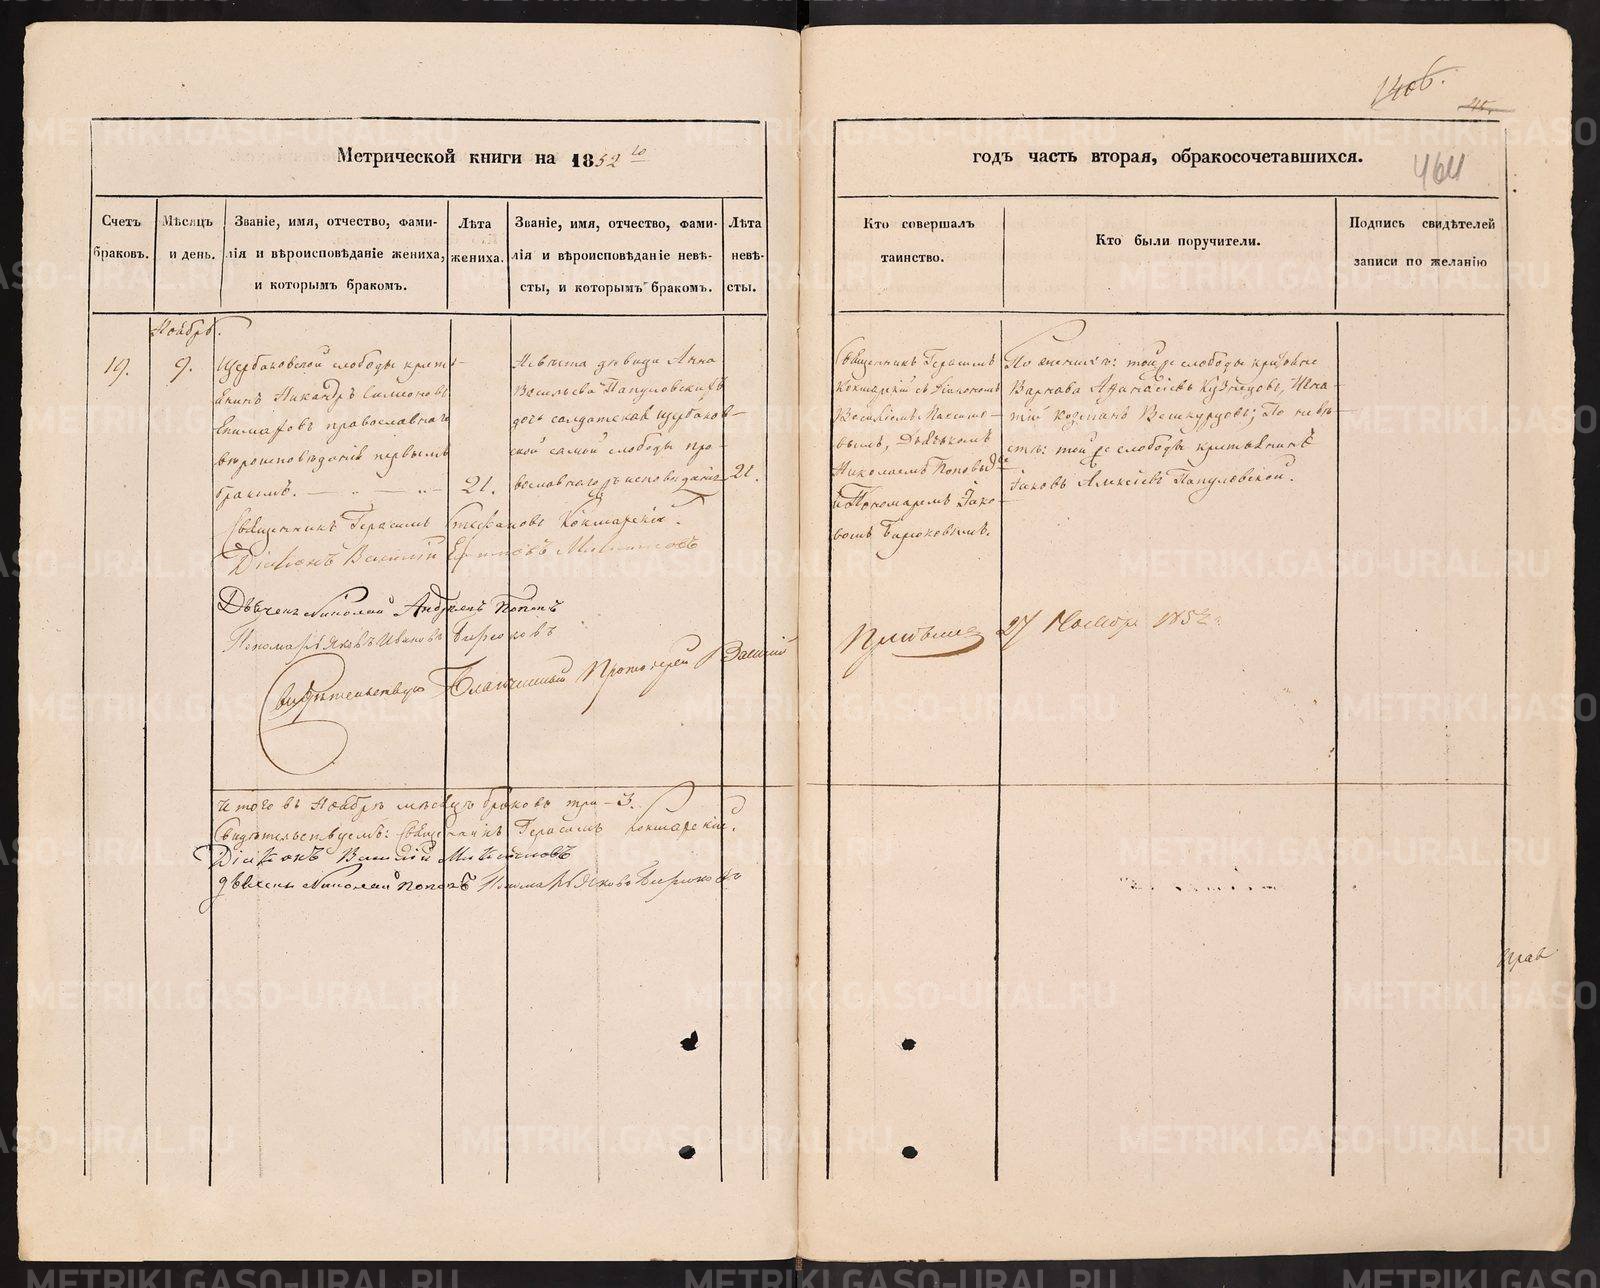 140б.
45.
464
Метрической книги на 1852 го
годъ часть вторая, обракосочетавшихся.
Счетъ браковъ.
Мѣсяцъ и день.
Званіе, имя, отчество, фами-
лія и вѣроисповѣданіе жениха,
и которымъ бракомъ.
Лѣта
жениха.
Званіе, имя, отчество, фами-
лія и вѣроисповѣданіе невѣ-
сты, и которымъ бракомъ.
Лѣта
невѣ-
сты.
Кто совершалъ
таинство.
Кто были поручители.
Подпись свидѣтелей
записи по желанію
Ноябрь.
19.
9.
Щербаковской слободы кресть-
янинъ Никандръ Симеоновъ
Епимаховъ православнаго
вѣроисповѣданія первымъ
бракомъ.
21.
Невѣста дѣвица Анна
Васильева Папуловскихъ
дочь солдатская Щербаков-
ской самой слободы пра-
вославнаго исповѣданія
21.
Священникъ Герасимъ
Кокшарскій съ Діакономъ
Василіемъ Максимо-
вымъ, Дьячкомъ
Николаемъ Поповымъ
и Пономаремъ Іако-
вомъ Бирюковымъ.
По женихѣ: той же слободы крестьяне
Варнава Афанасіевъ Кузнецовъ, Игна-
тій Козманъ Вешкурцовъ; По невѣ-
стѣ: той же слободы крестьянинъ
Іаковъ Алексіевъ Папуловской.
Священникъ Герасимъ Стефановъ Кокшарскій.
Діаконъ Василій
Дьячекъ Николай Андреевъ Поповъ
Пономарь Яковъ Ивановъ Бирюковъ
Свидѣтельствую Благочинный Протоіерей Василій
27 Ноября 1852
Итого въ Ноябрѣ мѣсяцѣ браковъ три - 3.
Свидѣтельствуемъ: Священникъ Герасимъ Кокшарскій.
Діаконъ Василій
дьячекъ Николай Поповъ Пономарь Яковъ Бирюковъ
METRIKI.GASO-URAL.RU